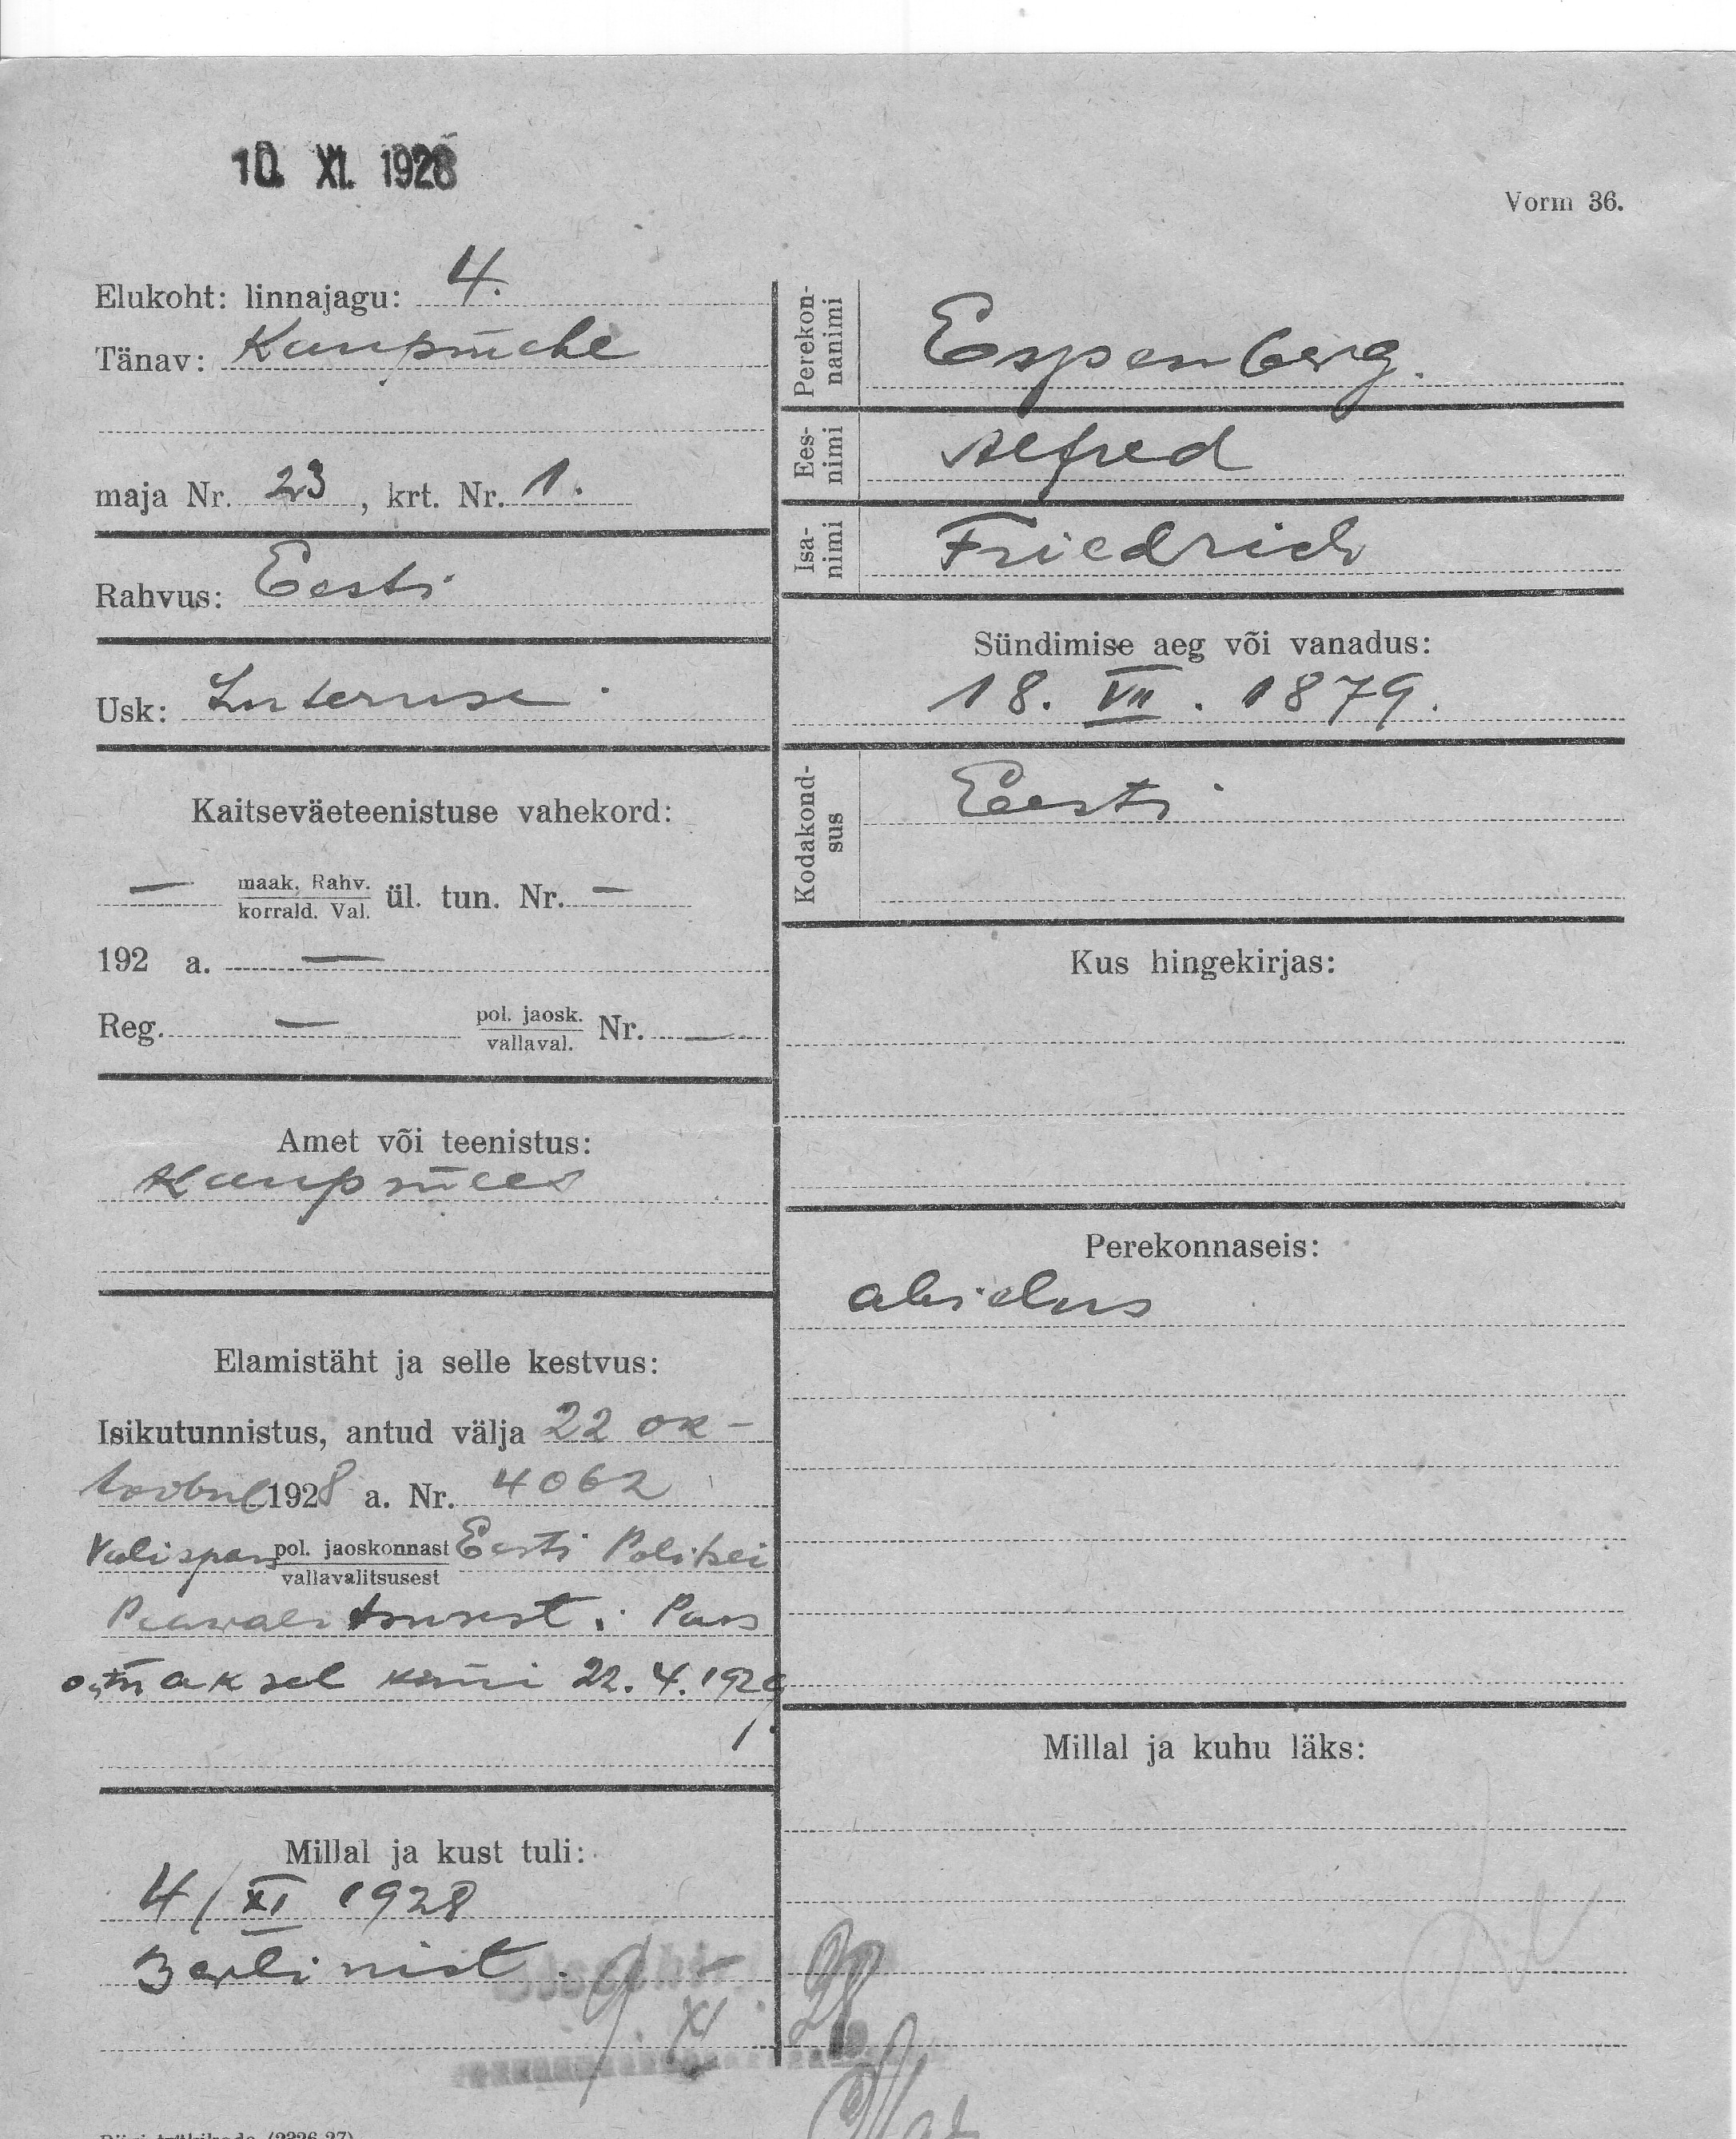 10. XI. 1928
Vorm 36.
Elukoht: linnajagu: 4.
Tänav: Kaupmehe
maja Nr. 23, krt. Nr. 1.
Rahvus: Eesti
Usk: Luteruse
Kaitseväeteenistuse vahekord:
— maak. Rahv. ül. tun. Nr. —
korrald. Val.
192 a. —
Reg. — pol. jaosk. Nr. —
vallaval.
Amet või teenistus:
Kaupmees
Elamistäht ja selle kestvus:
Isikutunnistus, antud välja 22 ok-
toobril 1928 a. Nr. 4062
Välispass pol. jaoskonnast Eesti Politsei
vallavalitsusest
Peavalitsusest. Pass
maksel kuni 22.4.1929
Millal ja kust tuli:
4/XI 1928
Berlinist.
9. XI. 28
Perekon-
nanimi
Espenberg.
Ees-
nimi
Alfred
Isa-
nimi
Friedrich
Sündimise aeg või vanadus:
18. VII. 1879.
Kodakond-
sus
Eesti
Kus hingekirjas:
Perekonnaseis:
abielus
Millal ja kuhu läks: